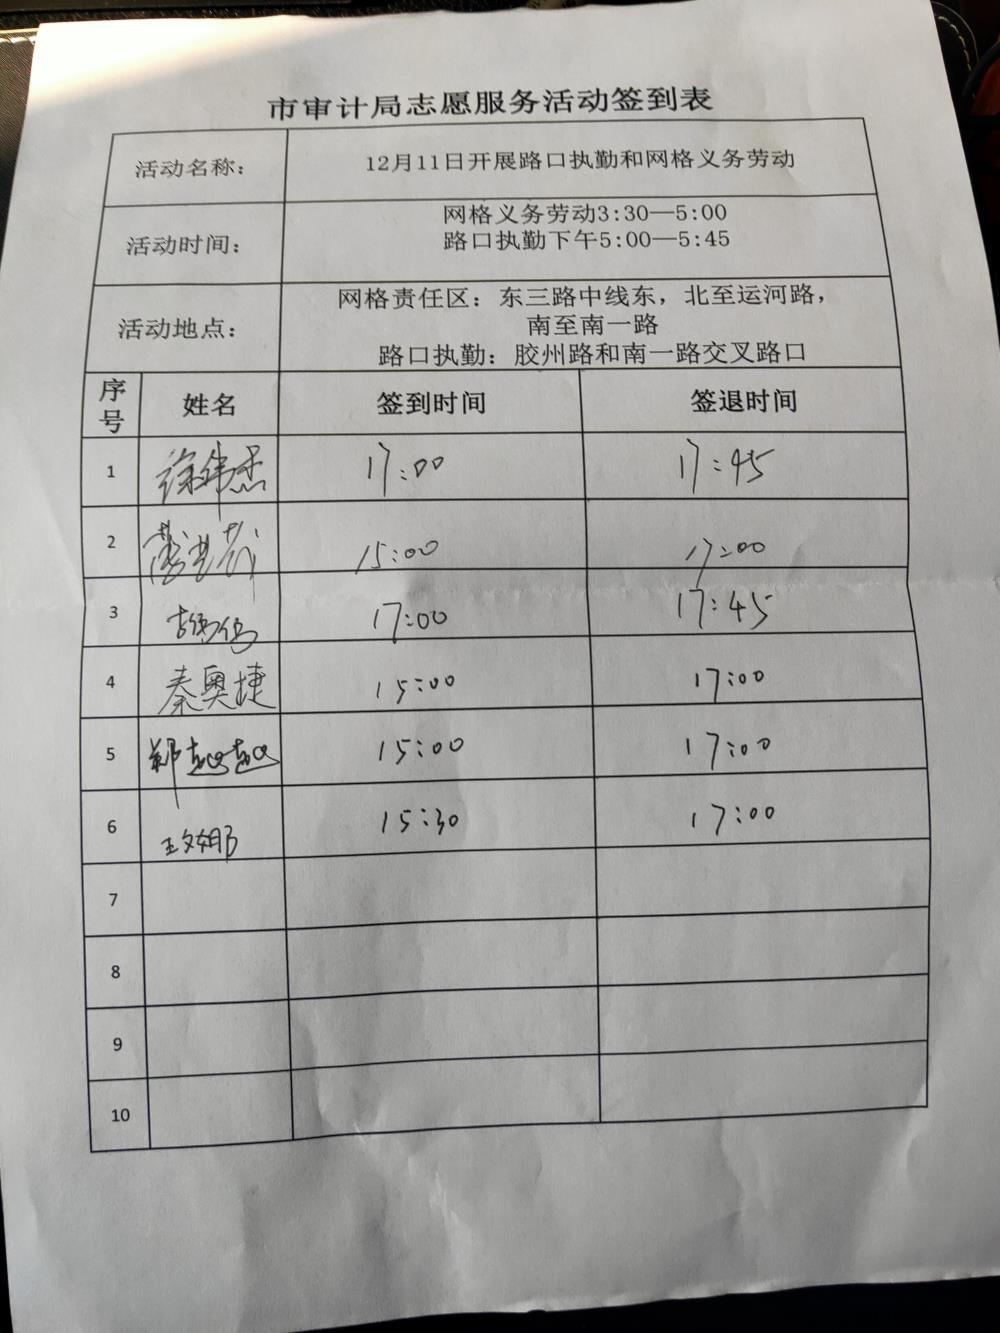 市审计局志愿服务活动签到表
活动名称： 12月11日开展路口执勤和网格义务劳动
活动时间： 网格义务劳动3:30—5:00
路口执勤下午5:00—5:45
活动地点： 网格责任区：东三路中线东，北至运河路，
南至南一路
路口执勤：胶州路和南一路交叉路口
序号 姓名 签到时间 签退时间
1 徐伟杰 17:00 17:45
2 15:00 17:00
3 17:00 17:45
4 秦奥捷 15:00 17:00
5 郑越越 15:00 17:00
6 王文娜 15:30 17:00
7
8
9
10